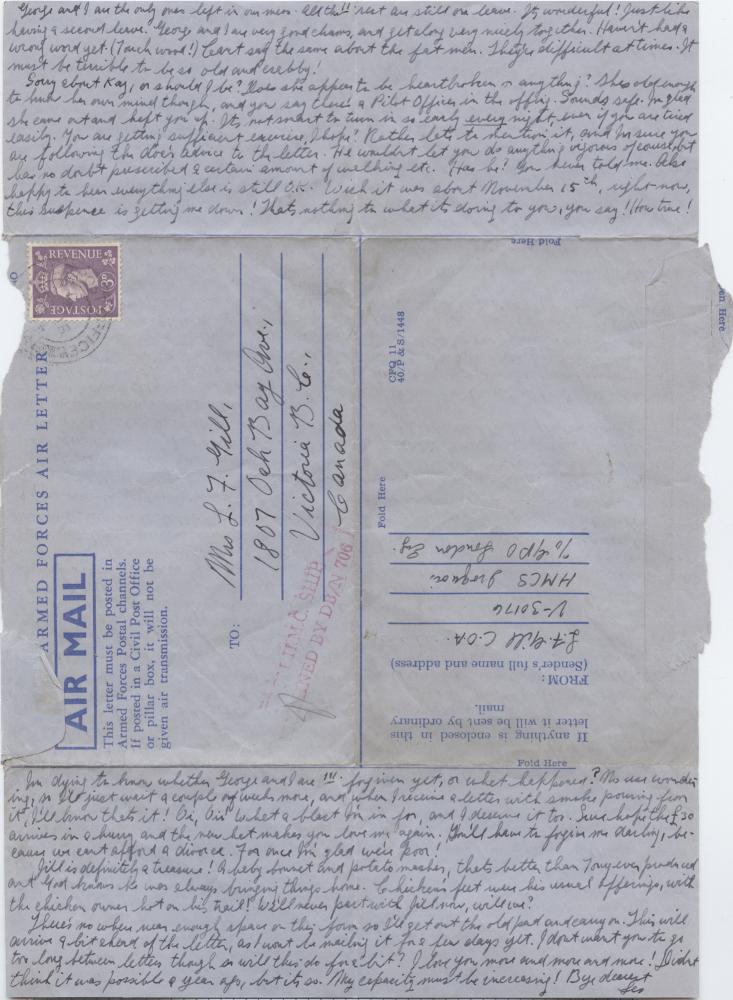 George and I are the only ones left in our mess. All the rest are still on leave. It's wonderful! Just like
having a second leave. George and I are very good chums, and get along very nicely together. Haven't had a
wrong word yet. (Touch wood!) Can't say the same about the fat men. They're difficult at times. It
must be terrible to be so old and crabby!
Sorry about Kay, or should I be? Does she appear to be heartbroken or anything? She's old enough
to know her own mind though, and you say there's a Pilot Officer in the offing. Sounds safe. I'm glad
she came out and kept you up. It's not smart to turn in so early every night, even if you are tired
easily. You are getting sufficient exercise, I hope? Rather late to mention it, and I'm sure you
are following the doc's advice to the letter. He wouldn't let you do anything vigorous of course, but
has no doubt prescribed a certain amount of walking etc. Has he? You never told me. Also
happy to hear everything else is still O.K. Wish it was about November 15th, right now,
this suspense is getting me down! That's nothing to what it's doing to you, you say! How true!
Fold Here
REVENUE
POSTAGE
3D
ARMED FORCES AIR LETTER
AIR MAIL
This letter must be posted in
Armed Forces Postal channels.
If posted in a Civil Post Office
or pillar box, it will not be
given air transmission.
TO:
Mrs L. F. Gill,
1807 Oak Bay Ave.,
Victoria B.C.,
Canada
H.M.C. SHIP
BY DB/N 706
CPQ 11
40/P & S/1448
Fold Here
en Here
If anything is enclosed in this
letter it will be sent by ordinary
mail.
FROM:
(Sender's full name and address)
L.F. Gill C.O.A.
V-30176
HMCS Iroquois
c/o GPO London Eng.
Fold Here
I'm dying to know whether George and I are !!! forgiven yet, or what happened? No use wonder-
ing, so I'll just wait a couple of weeks more, and when I receive a letter with smoke pouring from
it, I'll know that's it! Oi, Oi! What a blast I'm in for, and I deserve it too. Sure hope the £30
arrives in a hurry, and the new hat makes you love me again. You'll have to forgive me darling, be-
cause we can't afford a divorce. For once I'm glad we're poor!
Jill is definitely a treasure! A baby bonnet and potato masher, that's better than Tony ever produced
and God knows he was always bringing things home. Chickens feet were his usual offerings, with
the chicken owner hot on his trail! We'll never part with Jill now, will we?
There's no where near enough space on this form so I'll get out the old pad and carry on. This will
arrive a bit ahead of the letter, as I won't be mailing it for a few days yet. I don't want you to go
too long between letters though so will this do for a bit? I love you more and more and more! I didn't
think it was possible a year ago, but it is so. My capacity must be increasing! Bye dearest
Les